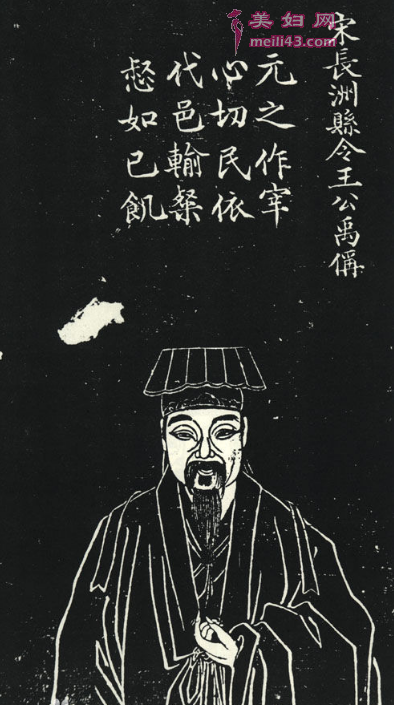 美妇网
meili43.com
宋長洲縣令王公禹偁
元之作宰
心切民依
代邑輸粲
惄如已飢